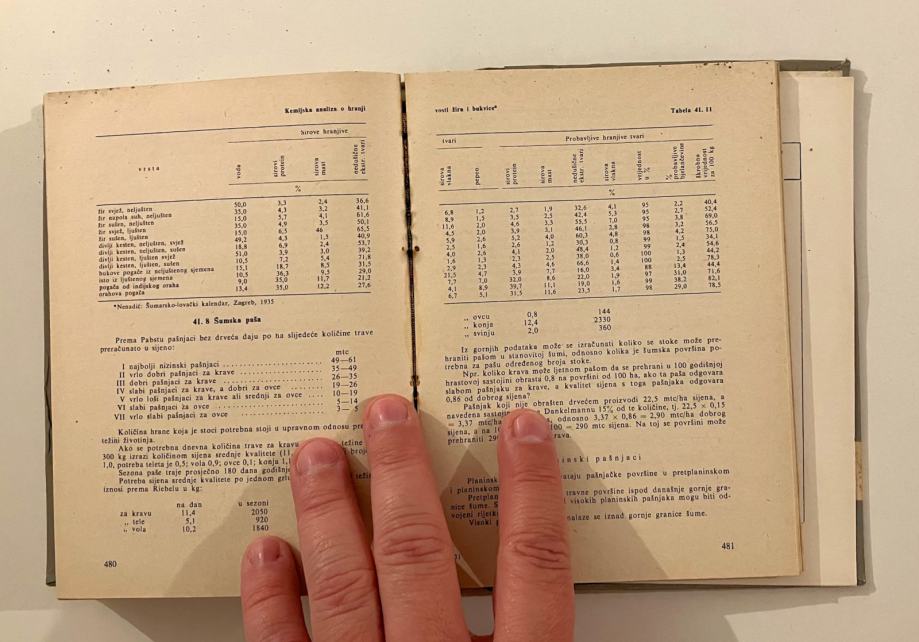 Kemijska analiza o hranji
Sirove hranjive
vrsta
voda
sirovi protein
sirova mast
nedušične ekstr. tvari
%
žir svjež, neljušten 50,0 3,3 2,4 36,6
žir napola suh, neljušten 35,0 4,3 3,2 41,1
žir sušen, neljušten 15,0 5,7 4,1 61,6
žir svjež, ljušten 35,0 4,9 3,5 50,1
žir sušen, ljušten 15,0 6,5 46 65,5
divlji kesten, neljušten, svjež 49,2 4,3 1,5 40,9
divlji kesten, neljušten, sušen 18,8 6,9 2,4 53,7
divlji kesten, ljušten svjež 51,0 3,9 3,0 39,2
divlji kesten, ljušten, sušen 10,5 7,2 5,4 71,8
bukove pogače iz neljuštenog sjemena 15,1 18,7 8,5 31,5
isto iz ljuštenog sjemena 10,5 36,3 9,5 29,0
pogača od indijskog oraha 9,0 35,0 11,7 21,2
orahova pogača 13,4 35,0 12,2 27,6
*Nenadić: Šumarsko-lovački kalendar, Zagreb, 1935
41. 8 Šumska paša
Prema Pabstu pašnjaci bez drveća daju po ha slijedeće količine trave
preračunato u sijeno:
mtc
I najbolji nizinski pašnjaci 49—61
II vrlo dobri pašnjaci za krave 35—49
III dobri pašnjaci za krave 26—35
IV slabi pašnjaci za krave, a dobri za ovce 19—26
V vrlo loši pašnjaci za krave ali srednji za ovce 10—19
VI slabi pašnjaci za ovce 5—14
VII vrlo slabi pašnjaci za ovce 3— 5
Količina hrane koja je stoci potrebna stoji u upravnom odnosu pre
težini životinja.
Ako se potrebna dnevna količina trave za kravu težine
300 kg izrazi količinom sijena srednje kvalitete (11, broj
1,0, potreba teleta je 0,5; vola 0,9; ovce 0,1; konja 1,1
Sezona paše traje prosječno 180 dana godišnj
Potreba sijena srednje kvalitete po jednom grlu sezini
iznosi prema Riebelu u kg:
na dan u sezoni
za kravu 11,4 2050
„ tele 5,1 920
„ vola 10,2 1840
480
vosti žira i bukvice*
Tabela 41. 11
tvari
Probavljive hranjive tvari
sirova vlakna
pepeo
sirovi protein
sirova mast
nedušične ekstr. tvari
sirova vlakna
vrijednost u %
% probavljive bjelančevine
škrobna vrijednost za 100 kg
%
6,8 1,2 2,7 1,9 32,6 4,1 95 2,2 40,4
8,9 1,5 3,5 2,5 42,4 5,3 95 2,7 52,4
11,6 2,0 4,6 3,3 55,5 7,0 95 3,8 69,0
4,5 2,0 3,9 3,1 46,1 2,8 98 3,2 56,5
5,9 2,6 5,2 4,0 60,3 4,8 98 4,2 75,0
2,5 1,6 2,6 1,2 30,3 0,8 99 1,5 34,1
4,0 2,6 4,1 2,0 48,4 1,2 99 2,4 54,6
1,6 1,3 2,3 2,5 38,0 0,6 100 1,3 44,2
2,9 2,3 4,3 4,6 66,6 1,4 100 2,5 78,3
21,5 4,7 3,9 7,7 16,0 3,4 88 13,4 44,4
7,7 7,0 32,0 8,6 22,0 1,9 97 31,0 71,6
4,1 8,9 39,7 11,1 19,0 1,6 99 38,2 81,1
6,7 5,1 31,5 11,6 23,5 1,7 98 29,0 78,5
„ ovcu 0,8 144
„ konja 12,4 2330
„ svinju 2,0 360
Iz gornjih podataka može se izračunati koliko se stoke može pre-
hraniti pašom u stanovitoj šumi, odnosno kolika je šumska površina po-
trebna za pašu određenog broja stoke.
Npr. koliko krava može ljetnom pašom da se prehrani u 100 godišnjoj
hrastovoj sastojini obrasta 0,8 na površini od 100 ha, ako ta paša odgovara
slabom pašnjaku za krave, a kvalitet sijena s toga pašnjaka odgovara
0,86 od dobrog sijena?
Pašnjak koji nije obrašten drvećem proizvodi 22,5 mtc/ha sijena, a
navedena sastoj Danckelmannu 15% od te količine, tj. 22,5 × 0,15
= 3,37 mtc/ha odnosno 3,37 × 0,86 = 2,90 mtc/ha dobrog
sijena, a na 10 100 = 290 mtc sijena. Na toj se površini može
prehraniti 290 krava.
inski pašnjaci
Planinsk ataju pašnjačke površine u pretplaninskom
i planinskom
Pretplan travne površine ispod današnje gornje gra-
nice šume. S i visokih planinskih pašnjaka mogu biti od-
vojeni rijetki
Visoki p nalaze se iznad gornje granice šume.
481